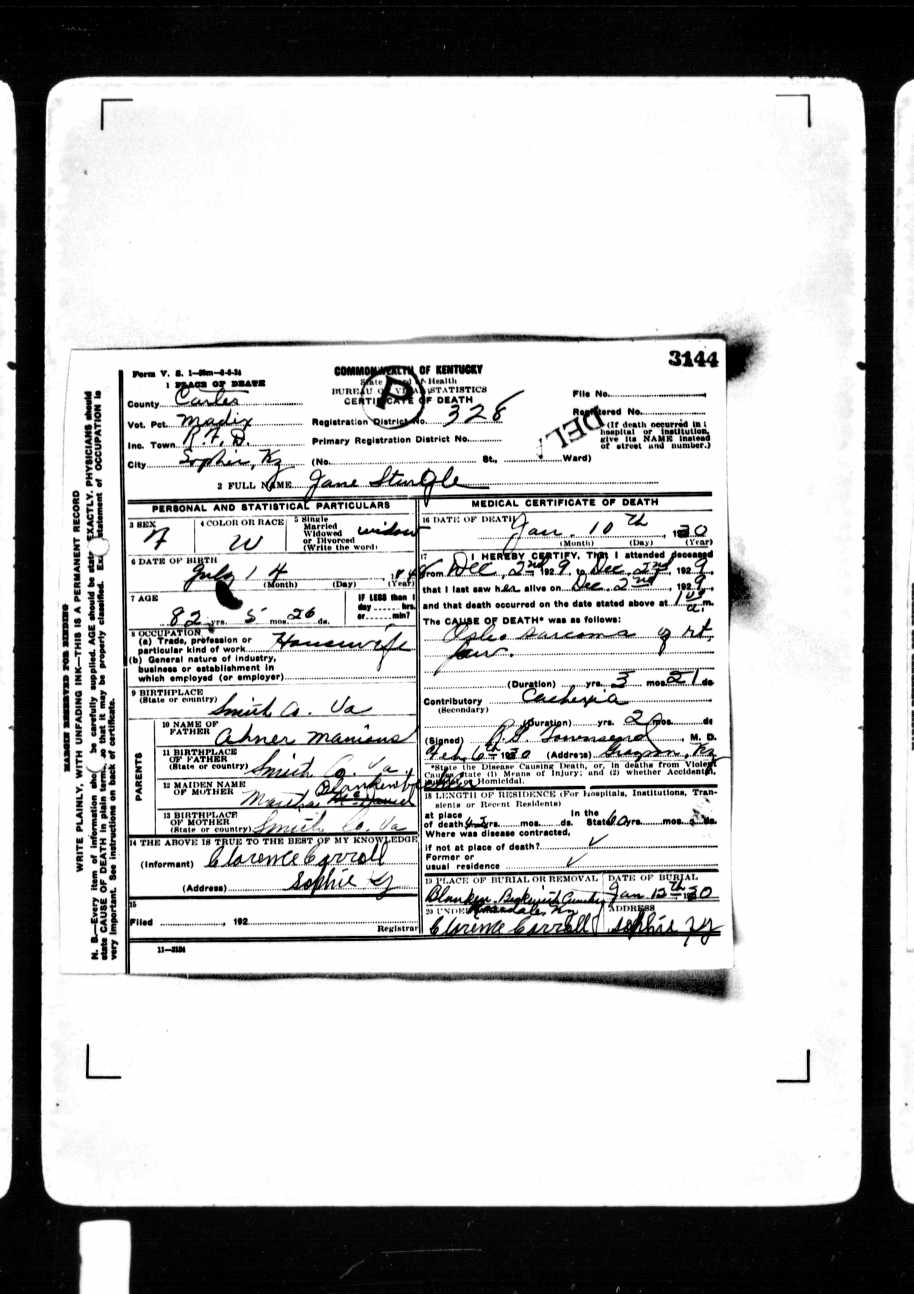 3144
Form V. S. 1—50m—6-6-24
COMMONWEALTH OF KENTUCKY
1 PLACE OF DEATH
State Board of Health
BUREAU OF VITAL STATISTICS
CERTIFICATE OF DEATH
P
DEL.
County Carter
Vot. Pct. Madix
Inc. Town R. F. D.
City Sophie, Ky
Registration District No. 328
Primary Registration District No.
(No. St., Ward)
File No.
Registered No.
(If death occurred in a
hospital or institution,
give its NAME instead
of street and number.)
2 FULL NAME Jane Sturgle
PERSONAL AND STATISTICAL PARTICULARS
3 SEX F
4 COLOR OR RACE W
5 Single
Married
Widowed
or Divorced
(Write the word)
widow
6 DATE OF BIRTH
July 14 184
(Month) (Day) (Year)
7 AGE
82 yrs. 5 mos. 26 ds.
IF LESS than 1
day hrs.
or min?
8 OCCUPATION
(a) Trade, profession or
particular kind of work Housewife
(b) General nature of industry,
business or establishment in
which employed (or employer)
9 BIRTHPLACE
(State or country) Smith Co. Va
PARENTS
10 NAME OF
FATHER Abner Manious
11 BIRTHPLACE
OF FATHER
(State or country) Smith Co. Va,
12 MAIDEN NAME
OF MOTHER Martha Blankenbeckler
13 BIRTHPLACE
OF MOTHER
(State or country) Smith Co. Va
14 THE ABOVE IS TRUE TO THE BEST OF MY KNOWLEDGE
(Informant) Clarence Carroll
(Address) Sophie Ky
15
Filed , 192
Registrar
11—3184
MEDICAL CERTIFICATE OF DEATH
16 DATE OF DEATH
Jan. 10th, 1930
(Month) (Day) (Year)
17 I HEREBY CERTIFY, That I attended deceased
from Dec. 2nd 1929, to Dec. 2nd, 1929,
that I last saw her alive on Dec. 2nd, 1929,
and that death occurred on the date stated above at a.m.
The CAUSE OF DEATH* was as follows:
Osteo sarcoma of rt.
jaw.
(Duration) yrs. 3 mos. 21 ds
Contributory Cachexia
(Secondary)
(Duration) yrs. 2 mos. ds
(Signed) Townsend, M. D.
Feb. 6th 1930 (Address) Grayson, Ky
*State the Disease Causing Death, or, in deaths from Violent
Causes state (1) Means of Injury; and (2) whether Accidental,
Suicidal or Homicidal.
18 LENGTH OF RESIDENCE (For Hospitals, Institutions, Tran-
sients or Recent Residents)
at place
of death yrs. mos. ds.
In the
State 60 yrs. mos. ds.
Where was disease contracted,
if not at place of death?
Former or
usual residence
19 PLACE OF BURIAL OR REMOVAL
DATE OF BURIAL
Jan. 12th 1930
ADDRESS
Clarence Carroll Sophie Ky
MARGIN RESERVED FOR BINDING
WRITE PLAINLY, WITH UNFADING INK—THIS IS A PERMANENT RECORD
N. B.—Every item of information should be carefully supplied. AGE should be stated EXACTLY. PHYSICIANS should
state CAUSE OF DEATH in plain terms, so that it may be properly classified. Exact statement of OCCUPATION is
very important. See instructions on back of certificate.